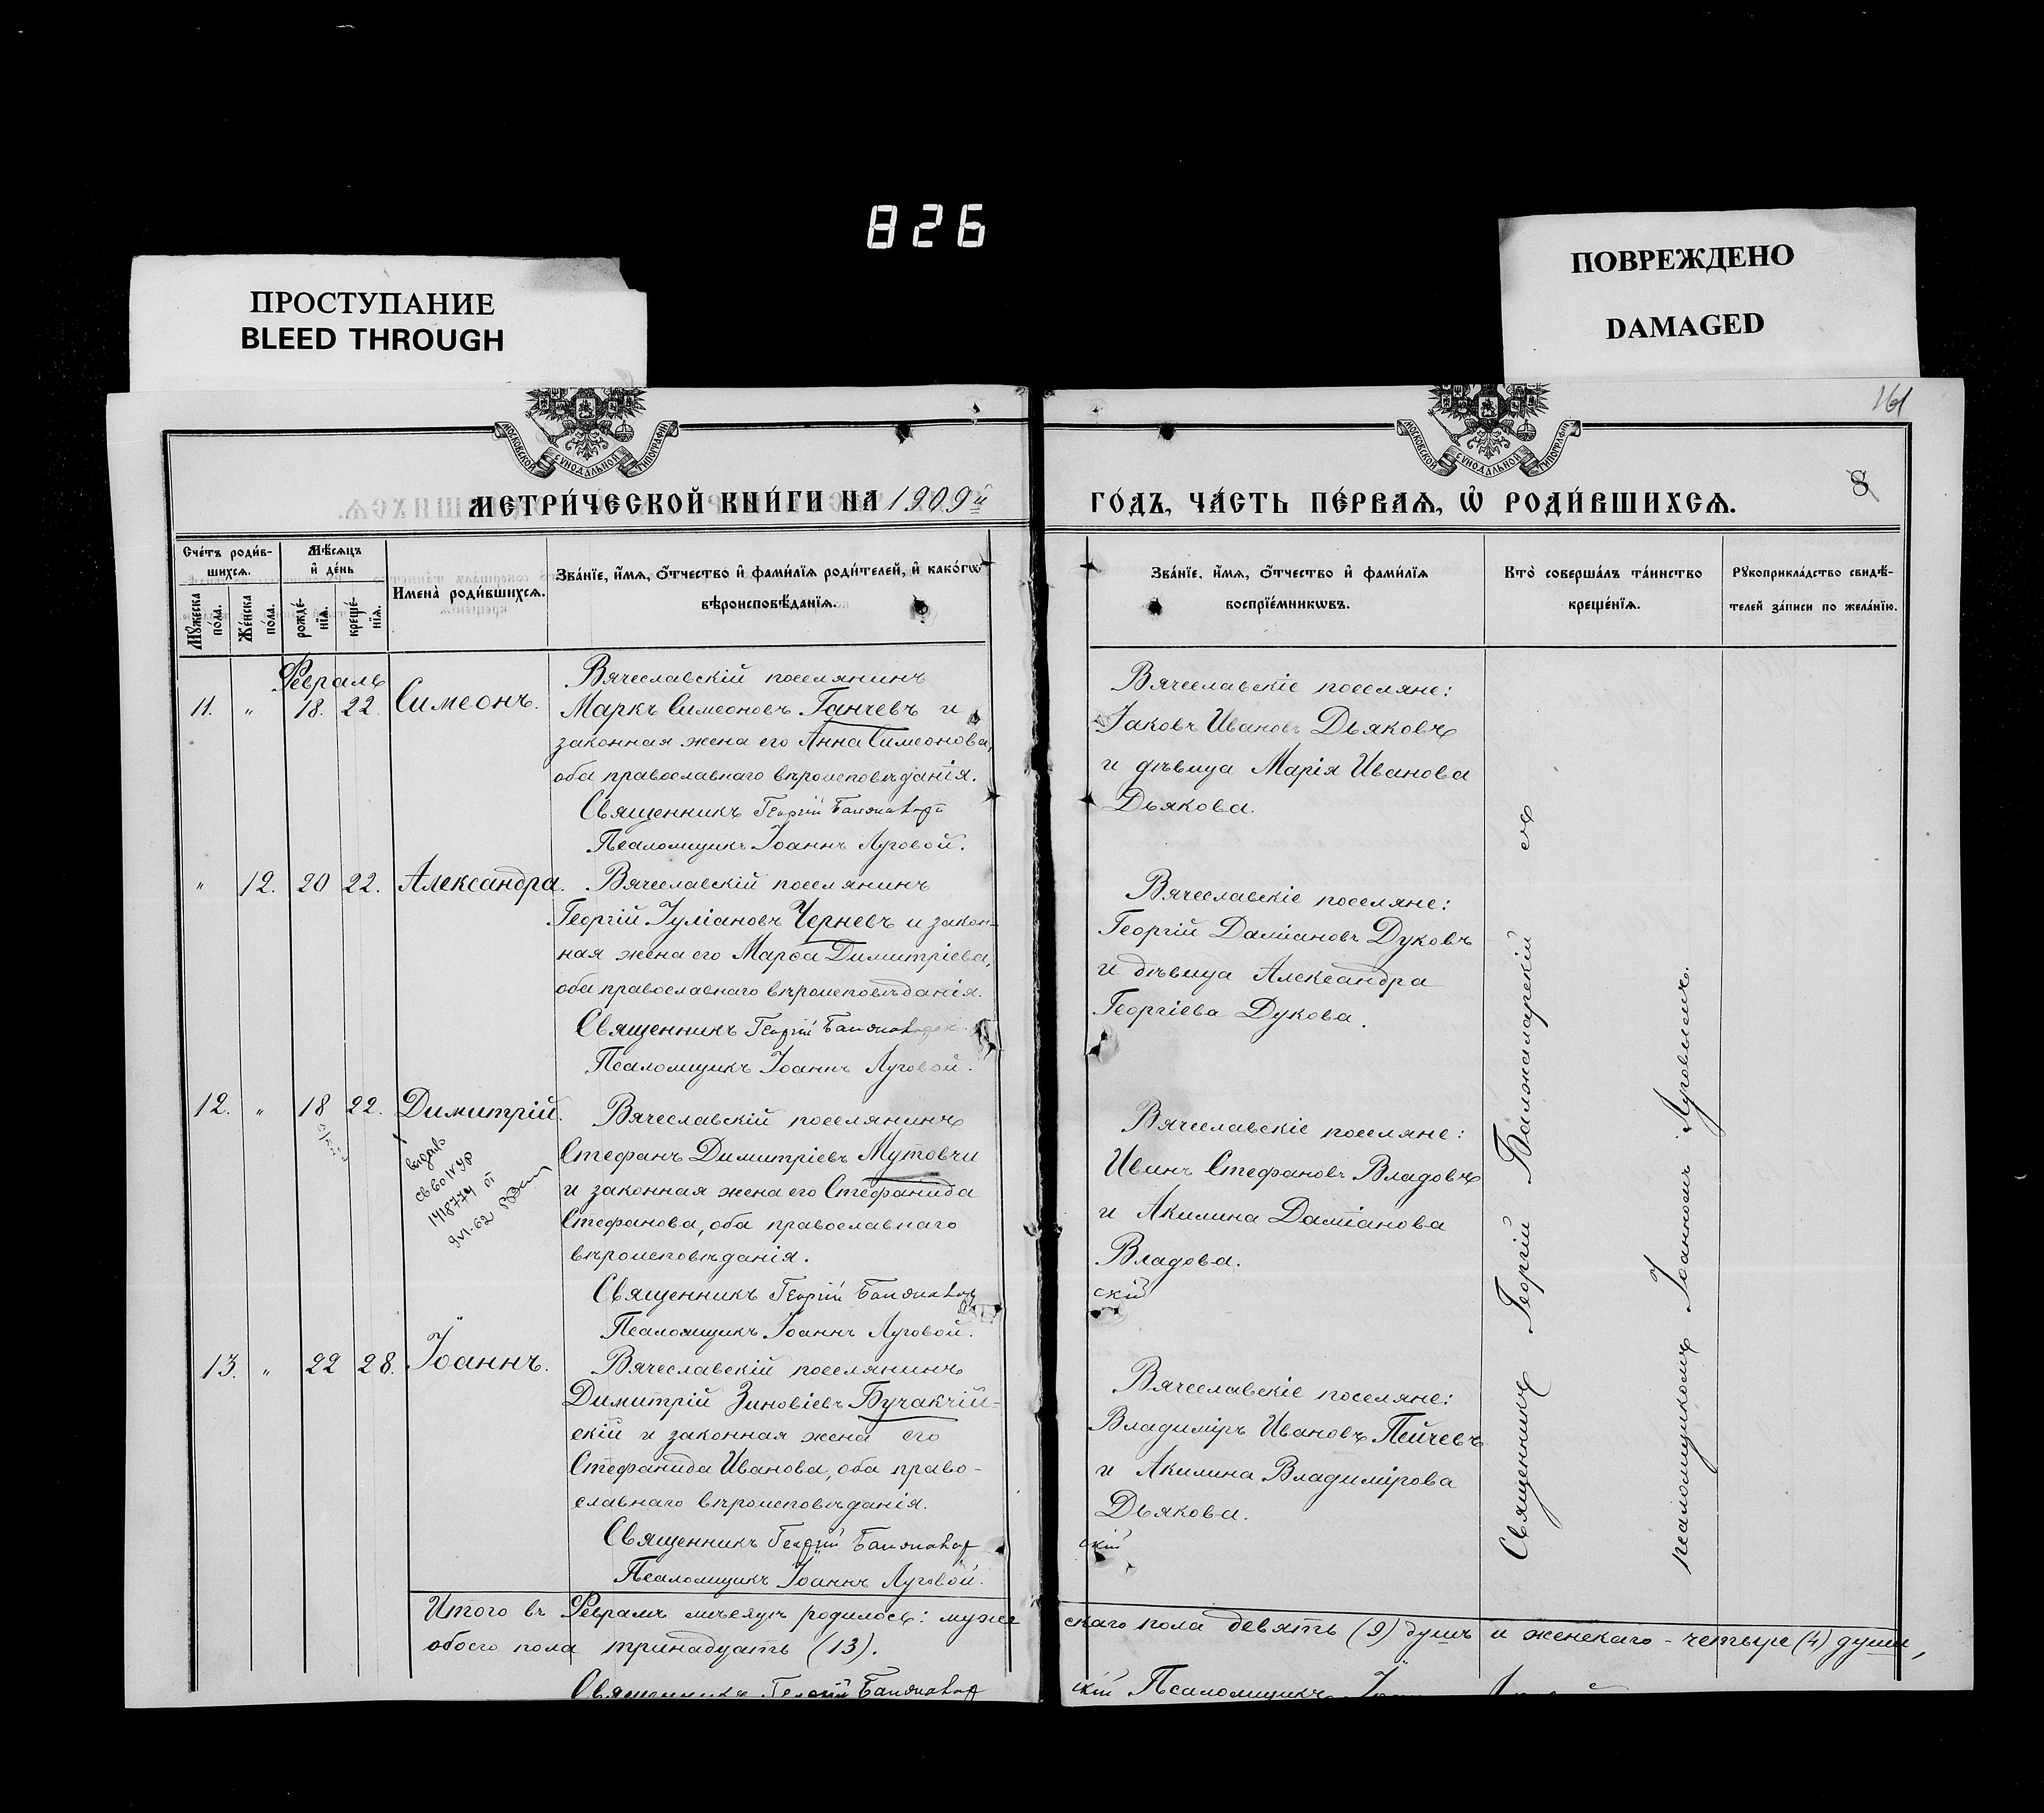 826
ПРОСТУПАНИЕ
BLEED THROUGH
ПОВРЕЖДЕНО
DAMAGED
161
МОСКОВСКОЙ СУНОДАЛЬНОЙ ТИПОГРАФІИ
МОСКОВСКОЙ СУНОДАЛЬНОЙ ТИПОГРАФІИ
8
МЕТРИ́ЧЕСКОЙ КНИ́ГИ НА 1909й
ГО́ДЪ, ЧА́СТЬ ПЕ́РВАѦ, Ѡ҆ РОДИ́ВШИХСѦ.
Сче́тъ роди́в-
шихсѧ.
Мꙋ́жеска
по́ла.
Же́нска
по́ла.
Мѣ́сѧцъ
и҆ де́нь
рожде́-
нїѧ.
креще́-
нїѧ.
И҆мена̀ роди́вшихсѧ.
Зва́нїе, и҆́мѧ, ѻ҆́тчество и҆ фами́лїѧ роди́телей, и҆ како́гѡ
вѣроисповѣ́данїѧ.
Зва́нїе, и҆́мѧ, ѻ҆́тчество и҆ фами́лїѧ
воспрїе́мникѡвъ.
Кто̀ соверша́лъ та́инство
креще́нїѧ.
Рꙋкоприкла́дство свидѣ́-
телей за́писи по жела́нїю.
Февраль
11. " 18. 22. Симеонъ.
Вячеславскій поселянинъ
Маркъ Симеоновъ Ганчевъ и
законная жена его Анна Симеонова,
оба православнаго вѣроисповѣданія.
Священникъ Георгій
Псаломщикъ Іоаннъ Луговой.
Вячеславскіе поселяне:
Іаковъ Ивановъ Дьяковъ
и дѣвица Марія Иванова
Дьякова.
" 12. 20 22. Александра.
Вячеславскій поселянинъ
Георгій Іуліановъ Черневъ и закон-
ная жена его Марѳа Димитріева,
оба православнаго вѣроисповѣданія.
Священникъ Георгій
Псаломщикъ Іоаннъ Луговой.
Вячеславскіе поселяне:
Георгій Даміановъ Дуковъ
и дѣвица Александра
Георгіева Дукова.
12. " 18 22. Димитрій.
выдано
1418774 от
9 VI-62
Вячеславскій поселянинъ
Стефанъ Димитріевъ Мутовчи
и законная жена его Стефанида
Стефанова, оба православнаго
вѣроисповѣданія.
Священникъ Георгій
Псаломщикъ Іоаннъ Луговой.
Вячеславскіе поселяне:
Иванъ Стефановъ Владовъ
и Акилина Даміанова
Владова.
скій
13. " 22 28. Іоаннъ.
Вячеславскій поселянинъ
Димитрій Зиновіевъ Бучакчій-
скій и законная жена его
Стефанида Иванова, оба право-
славнаго вѣроисповѣданія.
Священникъ Георгій
Псаломщикъ Іоаннъ Луговой.
Вячеславскіе поселяне:
Владиміръ Ивановъ Пейчевъ
и Акилина Владимірова
Дьякова.
скій
Священникъ Георгій Балжаларскій съ
псаломщикомъ Іоанномъ Луговымъ.
Итого въ Февралѣ мѣсяцѣ родилось: муже
скаго пола девять (9) душъ и женскаго - четыре (4) души,
обоего пола тринадцать (13).
Священникъ Георгій
скій Псаломщикъ